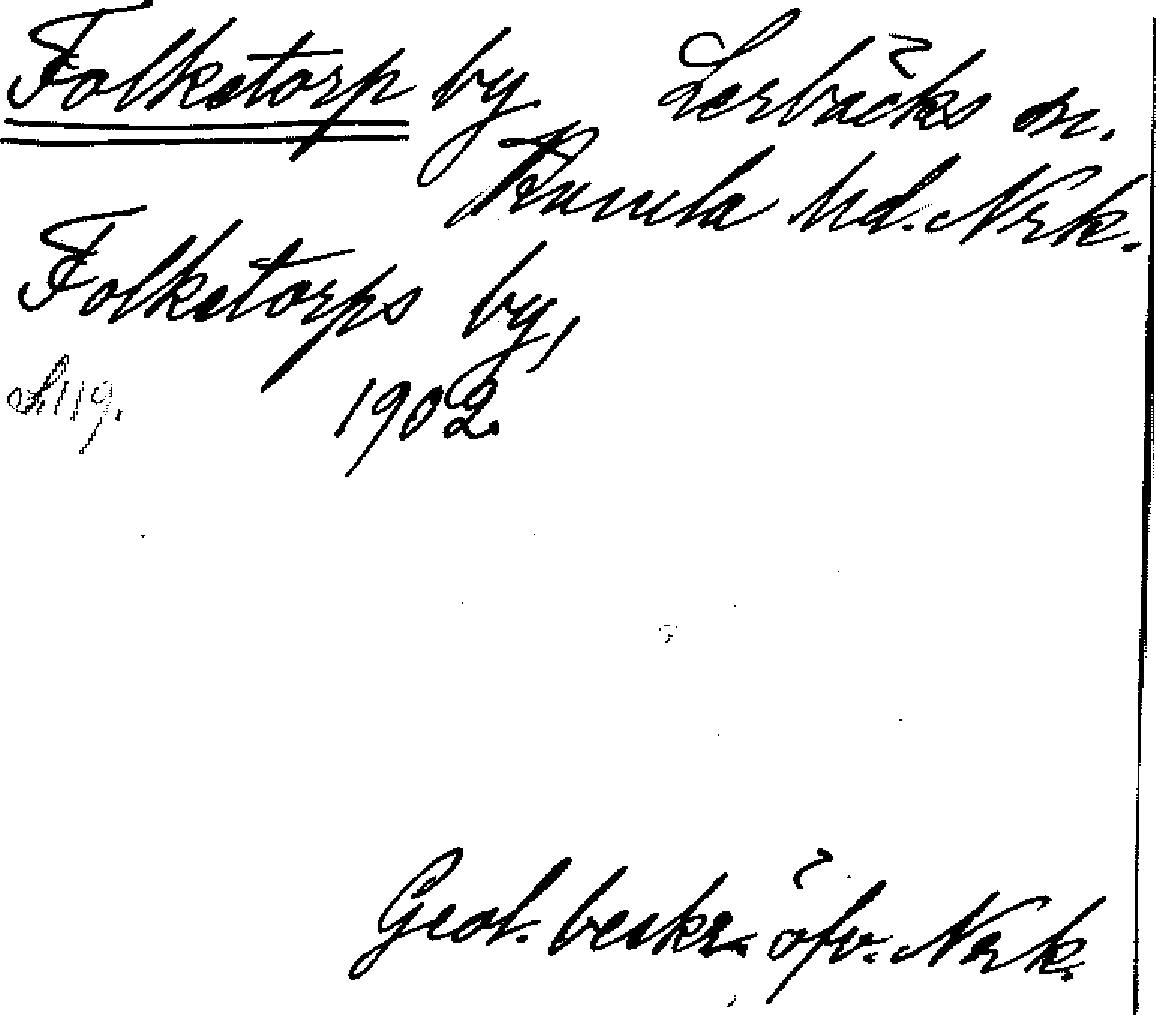 Folketorp by Lerbäcks sn.
Kumla hd. Nrk.
Folketorps by,
S. 119. 1902.
Geol. beskr. öfv. Nrk.